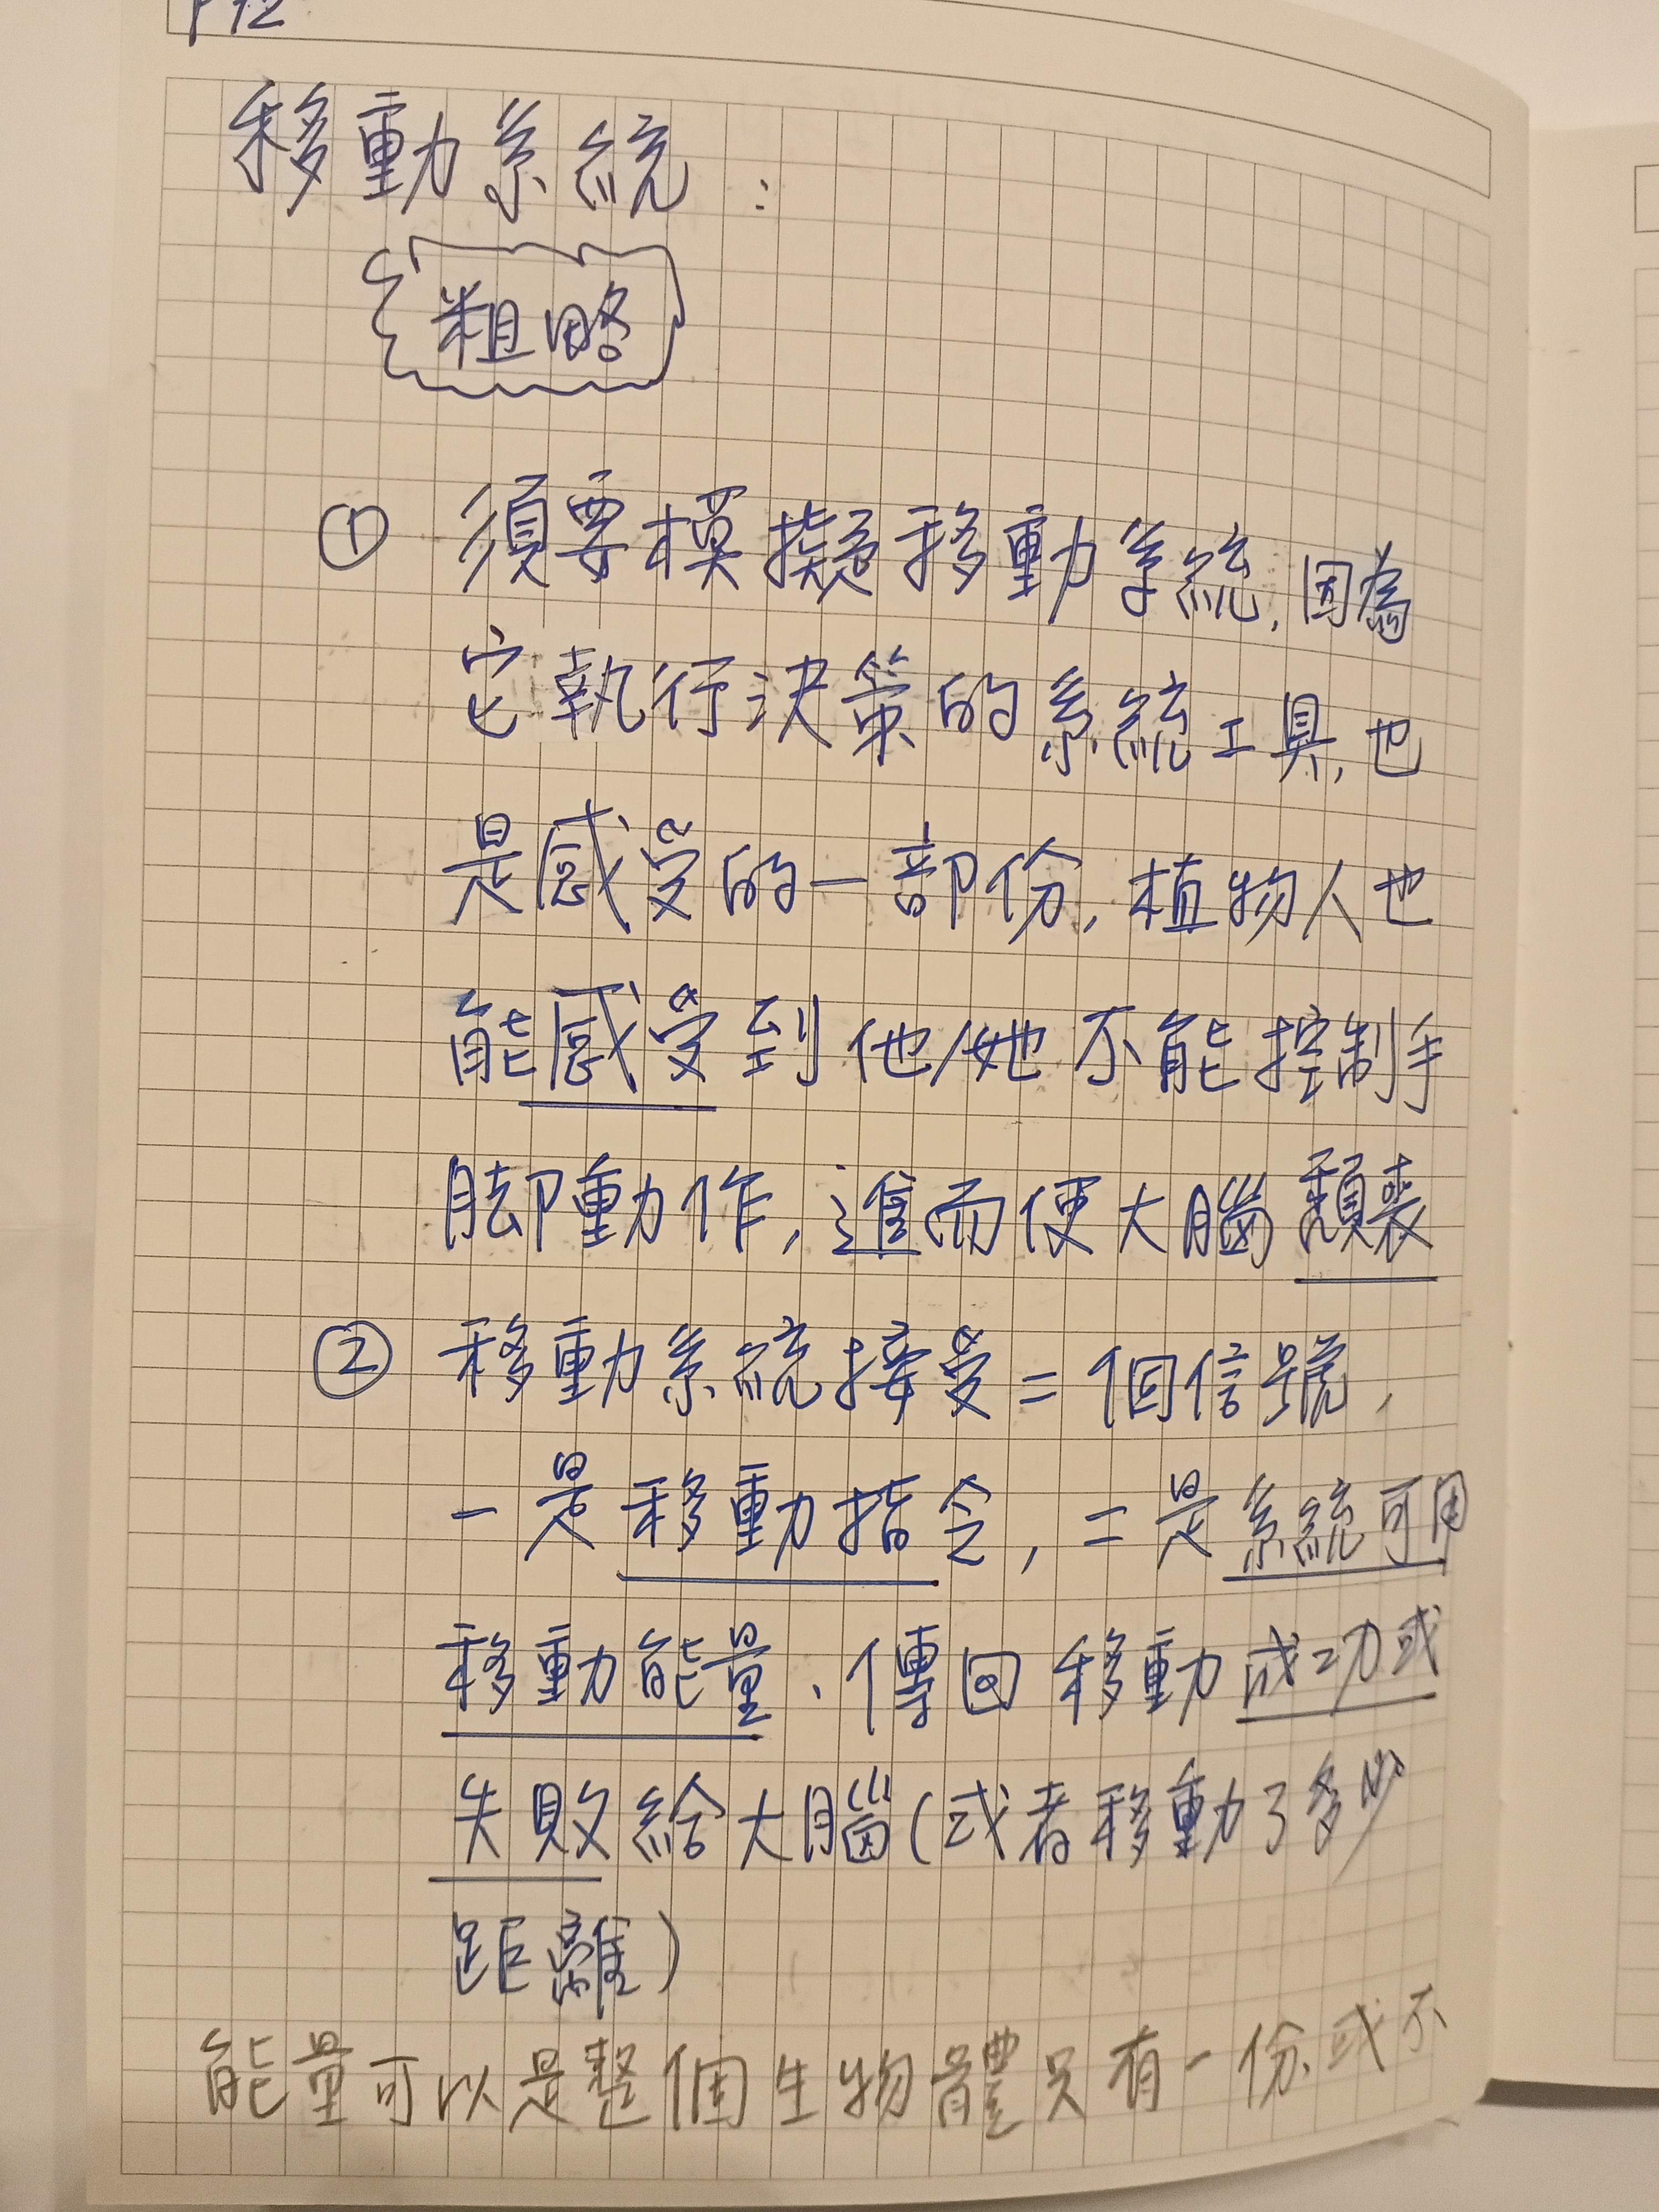 P12
移動系統:
粗略
① 須要模擬移動系統,因為
它執行決策的系統工具,也
是感受的一部份,植物人也
能感受到他/她不能控制手
脚動作,進而使大腦頹喪
② 移動系統接受二個信號,
一是移動指令,二是系統可用
移動能量、傳回移動成功或
失敗給大腦(或者移動了多少
距離)
能量可以是整個生物體只有一份、或不